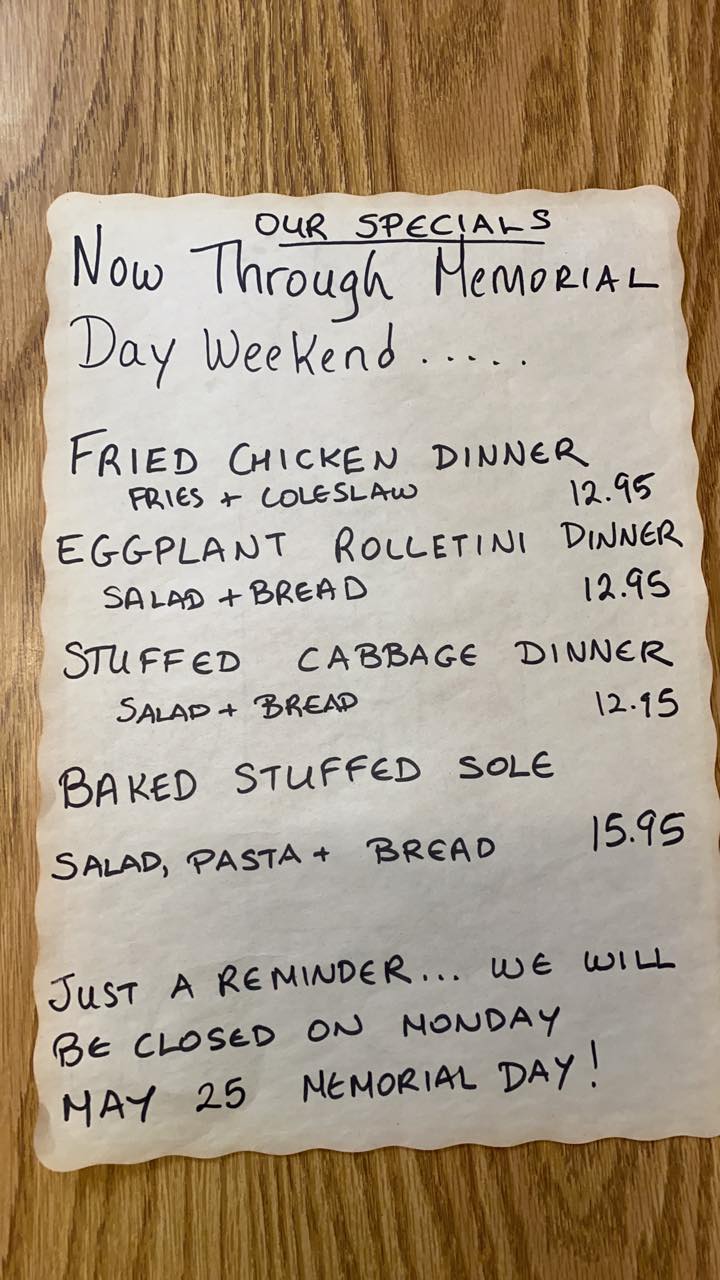 OUR SPECIALS
Now Through MEMORIAL
Day Weekend .....
FRIED CHICKEN DINNER
FRIES + COLESLAW 12.95
EGGPLANT ROLLETINI DINNER
SALAD + BREAD 12.95
STUFFED CABBAGE DINNER
SALAD + BREAD 12.95
BAKED STUFFED SOLE
SALAD, PASTA + BREAD 15.95
JUST A REMINDER... WE WILL
BE CLOSED ON MONDAY
MAY 25 MEMORIAL DAY!